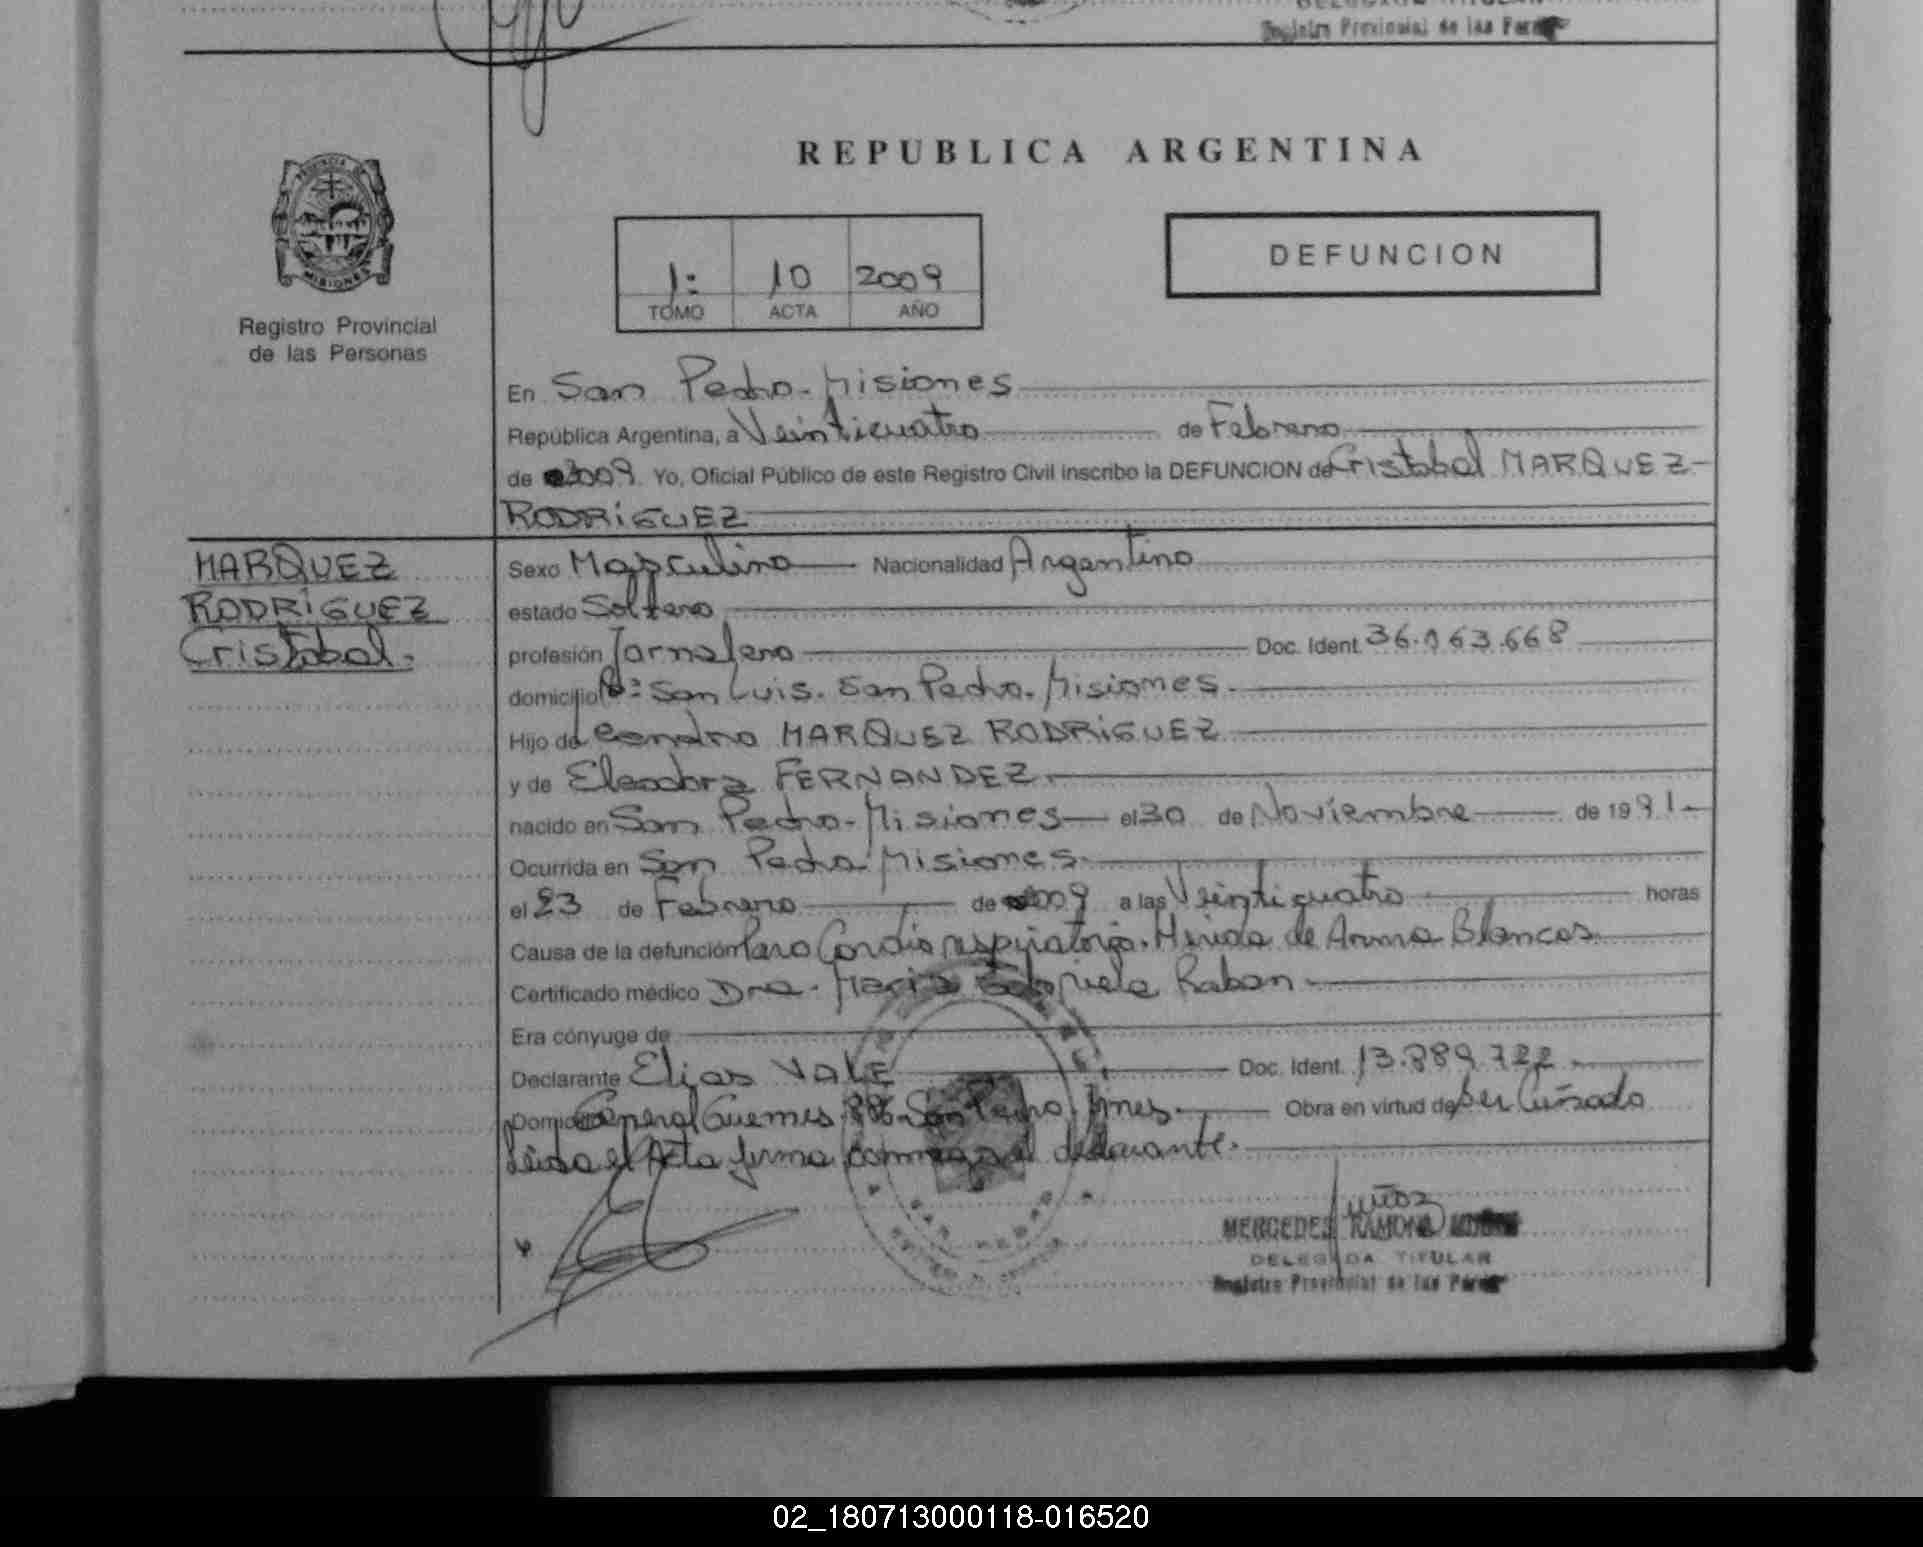 Registro Provincial de las
REPUBLICA ARGENTINA
PROVINCIA DE
MISIONES
Registro Provincial
de las Personas
1: 10 2009
TOMO ACTA AÑO
DEFUNCION
En San Pedro - Misiones
República Argentina, a Veinticuatro de Febrero
de 2009 Yo, Oficial Público de este Registro Civil inscribo la DEFUNCION de Cristobal MARQUEZ-
RODRIGUEZ
MARQUEZ
RODRIGUEZ
Cristobal.
Sexo Masculino Nacionalidad Argentino
estado Soltero
profesión Jornalero Doc. Ident. 36.063.668
domicilio San Luis. San Pedro. Misiones
Hijo de Leandro MARQUEZ RODRIGUEZ
y de Eleodora FERNANDEZ.
nacido en San Pedro - Misiones el 30 de Noviembre de 1991-
Ocurrida en San Pedro Misiones
el 23 de Febrero de 2009 a las Veinticuatro horas
Causa de la defunción Paro Cardio respiratorio. Herida de Arma Blancas
Certificado médico Dra. Maria Gabriela Raban
Era cónyuge de
Declarante Elias VALE Doc. Ident. 13.889.722
Domicilio General Guemes San Pedro Mnes. Obra en virtud de ser Cuñado
Leida el Acta firma conmigo el declarante.
Muñoz
MERCEDES RAMONA
DELEGADA TITULAR
Registro Provincial de las
02_180713000118-016520